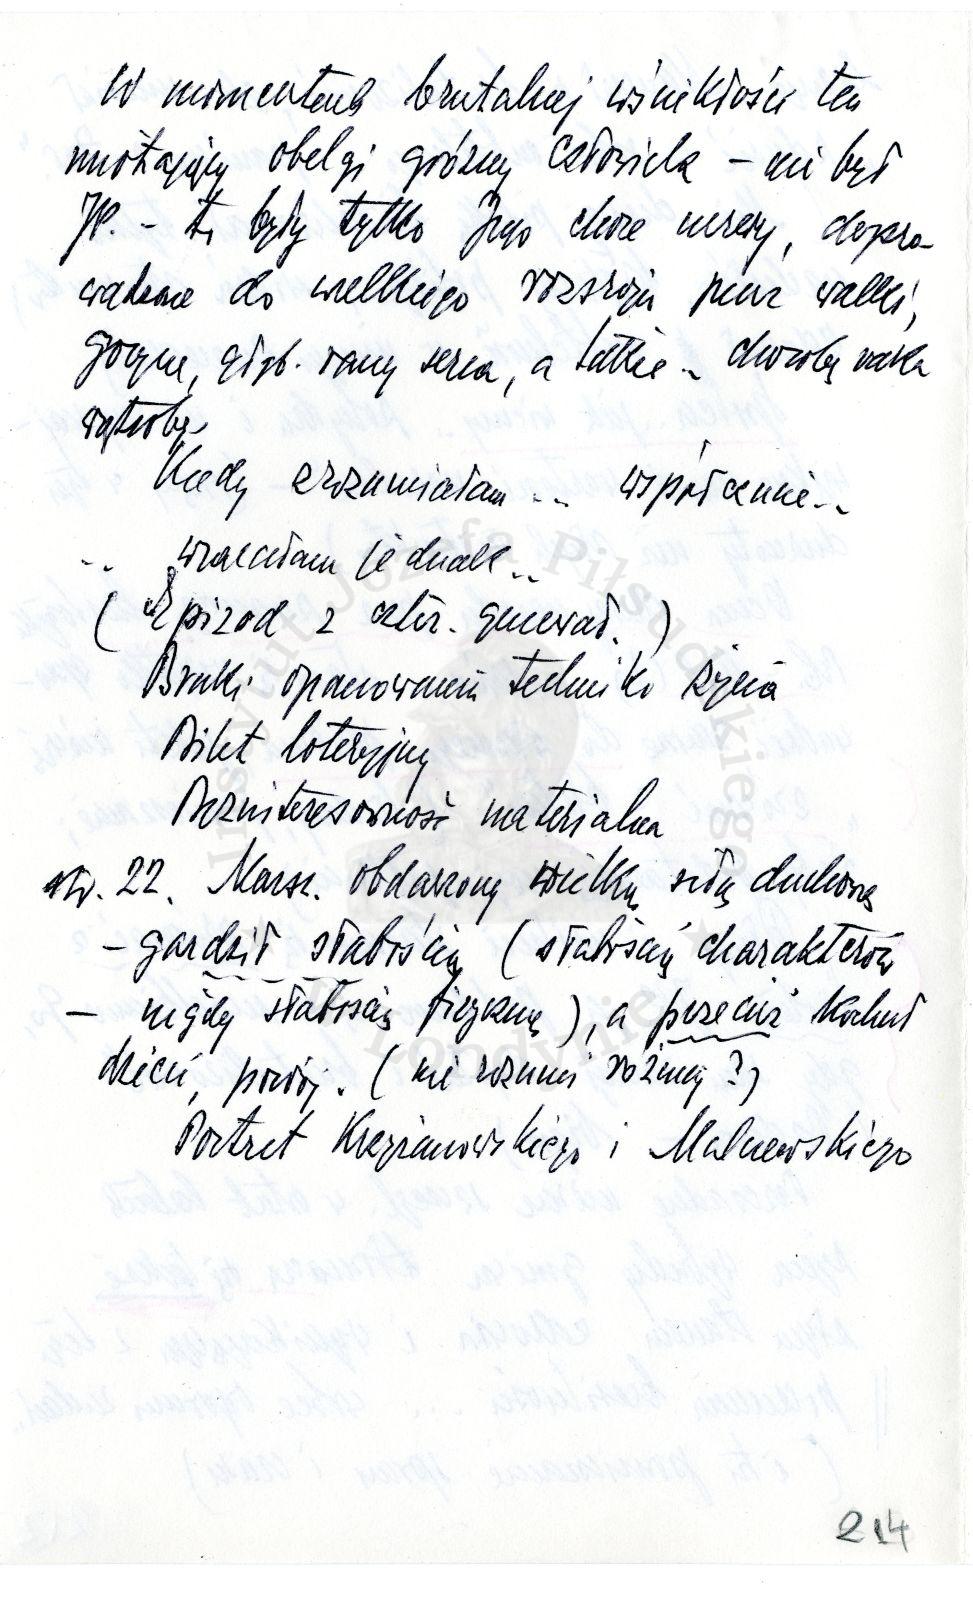 W momentach brutalnej wściekłości ten
miotający obelgi groźny człowiek – nie był
JP. – to były tylko Jego chore nerwy, dopro-
wadzone do wielkiego rozstroju przez walki,
gorycze, głęb. rany serca, a także .. chorobę raka
wątroby.
Kiedy zrozumiałam ... współczucie...
.. wracałam jednak ..
(Epizod z czter. generał.)
Braki opanowania techniki życia
Bilet loteryjny
Bezinteresowność materialna
str. 22. Marsz. obdarzony wielką siłą duchową
– gardził słabością (słabością charakterów
– nigdy słabością fizyczną), a przecież kochał
dzieci, (nie rozumie różnicy?)
Portret Krzyżanowskiego i Malczewskiego
214
Instytut Józefa Piłsudskiego
Londynie